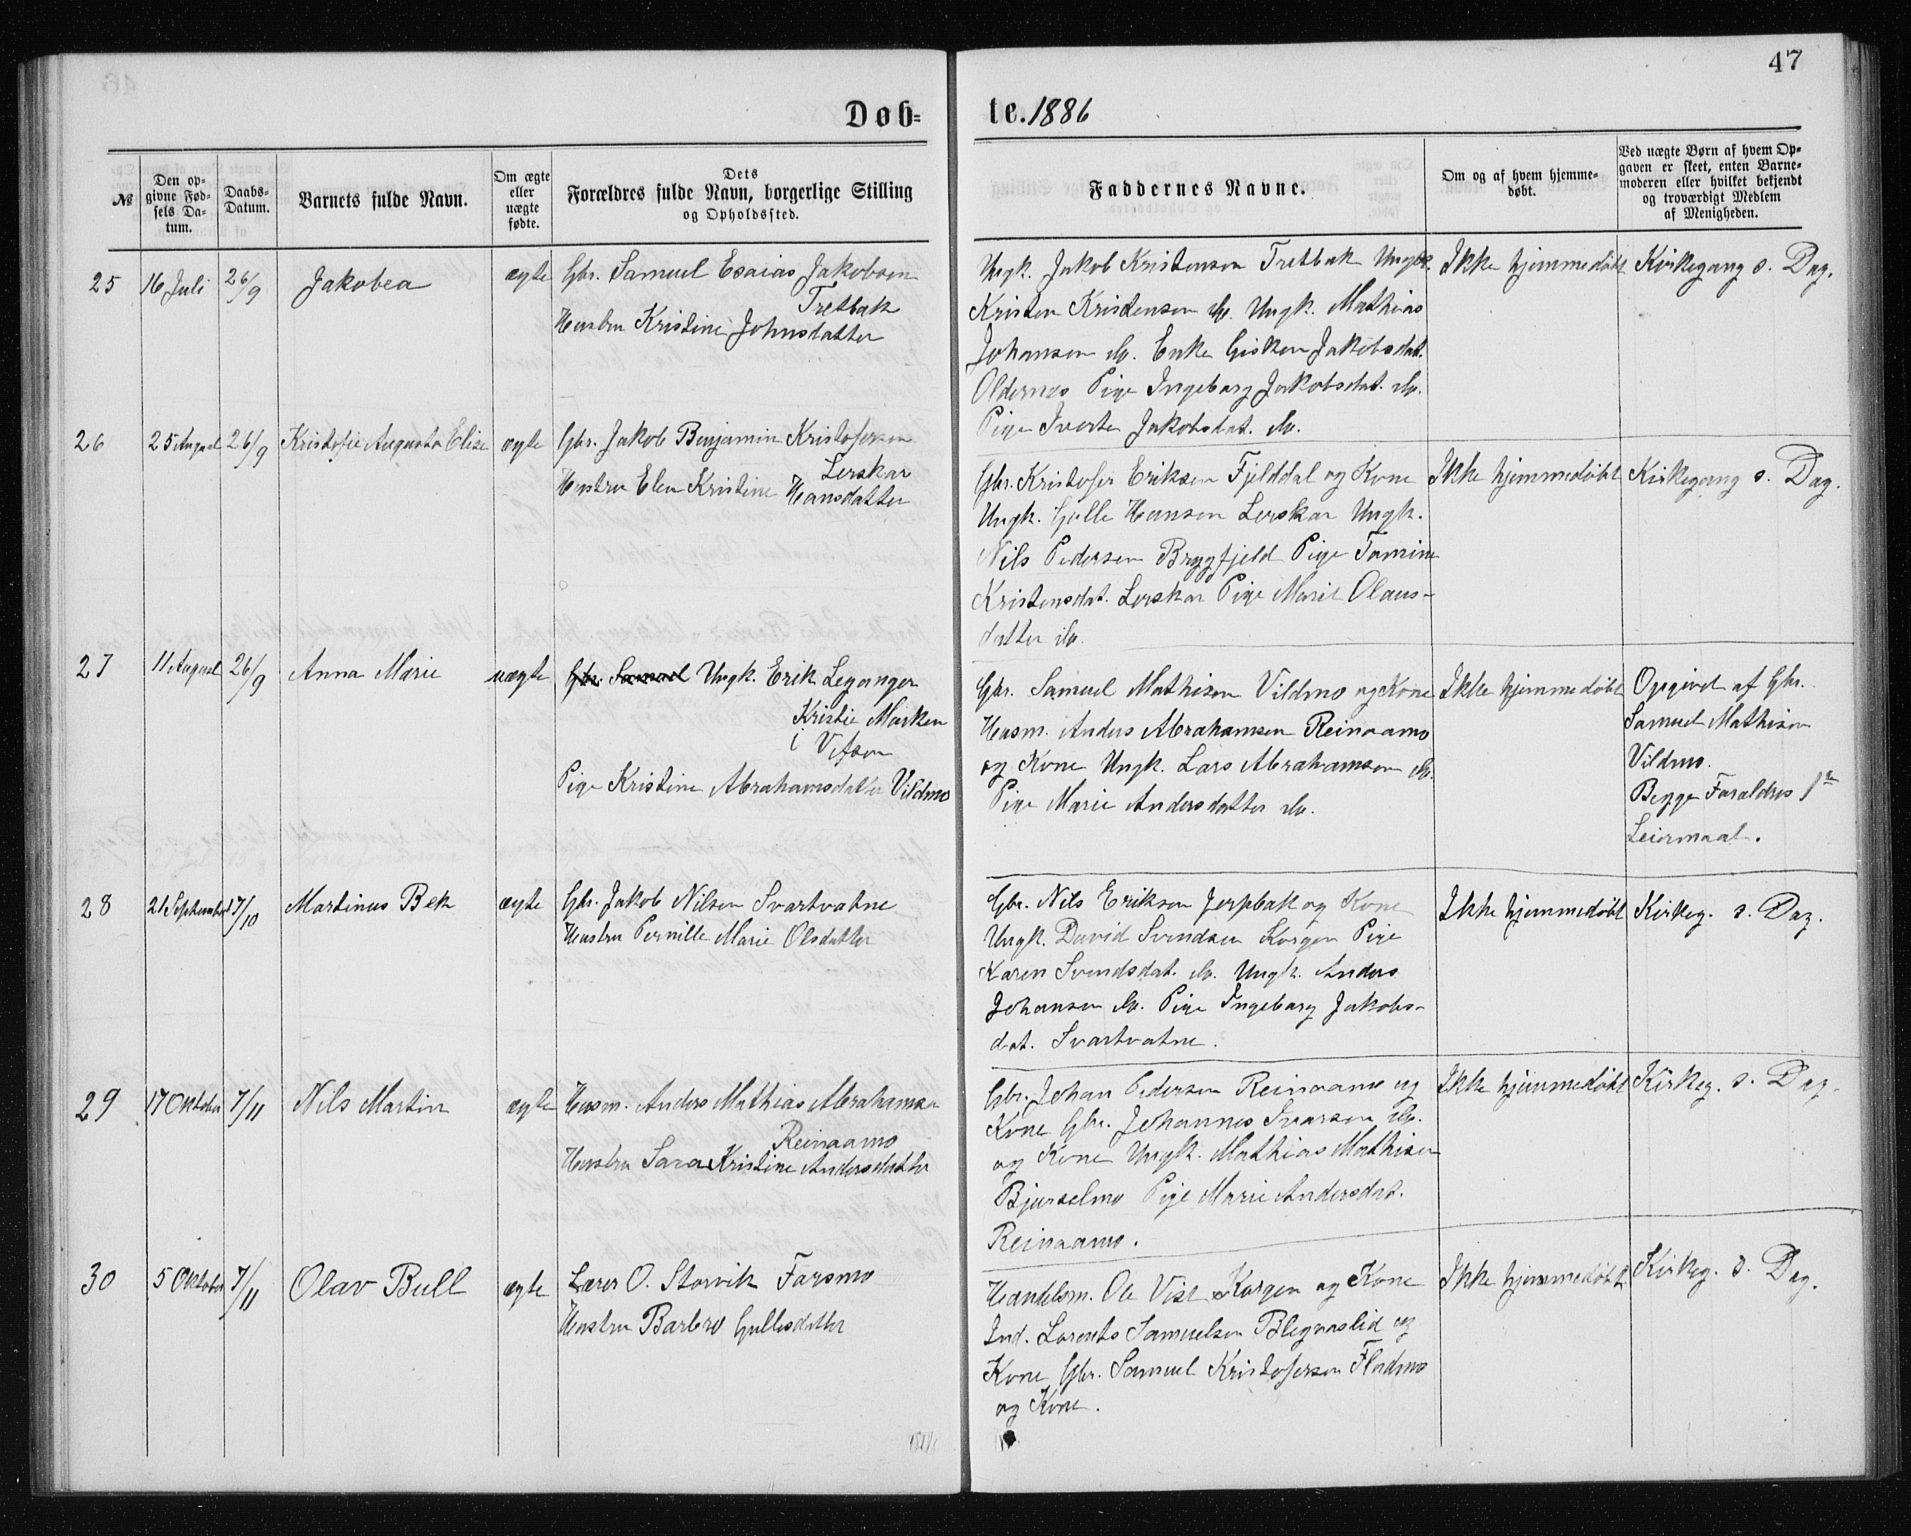 47
Døb=
te. 1886
№
Den op-
givne Fød-
sels Da-
tum.
Daabs-
Datum.
Barnets fulde Navn.
Om ægte
eller
uægte
fødte.
Dets
Forældres fulde Navn, borgerlige Stilling
og Opholdssted.
Faddernes Navne.
Om og af hvem hjemme-
døbt.
Ved uægte Børn af hvem Op-
gaven er skeet, enten Barne-
moderen eller hvilket bekjendt
og troværdigt Medlem
af Menigheden.
25
16 Juli
26/9
Jakobea
ægte
Gbr. Samuel Esaias Jakobsen
Tretbak
Hustru Kristine Johnsdatter
Ungk. Jakob Kristensen Tretbak Ungk.
Kristen Kristensen do. Ungk. Mathias
Johansen do. Enke Gisken Jakobsdat.
Oldernes Pige Ingeborg Jakobsdat. do.
Pige Iverte Jakobsdat. do.
Ikke hjemmedøbt
Kirkegang s. Dag.
26
25 August
26/9
Kristofie Augusta Elise
ægte
Gbr. Jakob Benjamin Kristofersen
Lerskar
Hustru Elen Kristine Hansdatter
Gbr. Kristofer Eriksen Fjelddal og Kone
Ungk. Gulle Hansen Lerskar Ungk.
Nils Pedersen Bryggfjeld Pige Tomine
Kristensdat. Lerskar Pige Marie Olaus-
datter do.
Ikke hjemmedøbt
Kirkegang s. Dag.
27
11 August
26/9
Anna Marie
uægte
Gbr. Samuel Ungk. Erik Leganger
Kristie Marken
i Vefsen
Pige Kristine Abrahamsdatter Vildmo
Gbr. Samuel Mathisen Vildmo og Kone
Husm. Anders Abrahamsen Reinaamo
og Kone Ungk. Lars Abrahamsen do.
Pige Marie Andersdatter do.
Ikke hjemmedøbt
Opgivet af Gbr.
Samuel Mathisen
Vildmo.
Begge Forældres 1ste
Leiermaal.
28
21 September
7/10
Martinus Bek
ægte
Gbr. Jakob Nilsen Svartvatne
Hustru Pernille Marie Olsdatter
Gbr. Nils Eriksen Jerpbak og Kone
Ungk. David Svendsen Korgen Pige
Karen Svendsdat. do. Ungk. Anders
Johansen do. Pige Ingeborg Jakobs-
dat. Svartvatne.
Ikke hjemmedøbt
Kirkeg. s. Dag.
29
17 Oktober
7/11
Nils Martin
ægte
Husm. Anders Mathias Abrahamsen
Reinaamo
Hustru Sara Kristine Andersdatter
Gbr. Johan Pedersen Reinaamo og
Kone Gbr. Johannes Ivarsen do.
og Kone Ungk. Mathias Mathisen
Bjurselmo Pige Marie Andersdat.
Reinaamo.
Ikke hjemmedøbt
Kirkeg. s. Dag.
30
5 Oktober
7/11
Olav Bull
ægte
Lærer O. Storvik Farsmo
Hustru Barbro Gullesdatter
Handelsm. Ole Vise Korgen og Kone
Ind. Lorents Samuelsen Blegnaslid og
Kone Gbr. Samuel Kristofersen Flodmo
og Kone.
Ikke hjemmedøbt
Kirkeg. s. Dag.